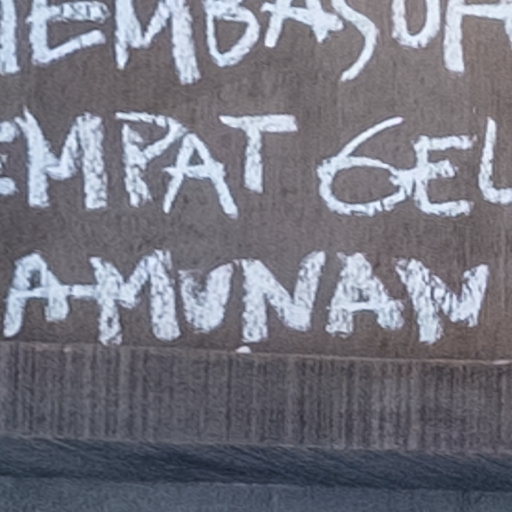 MEMBASUH
EMPAT GEL
AMUNAN